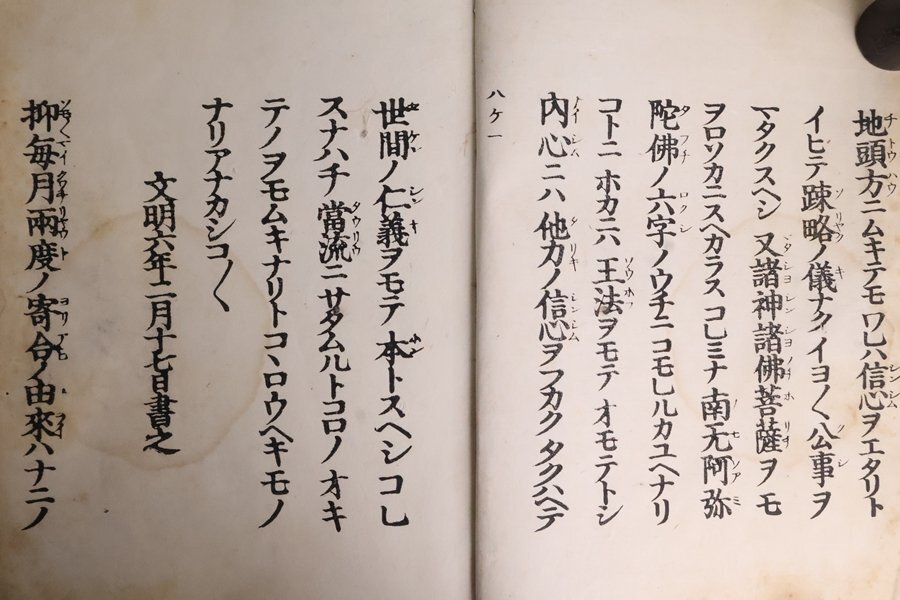 地頭方ニムキテモワレハ信心ヲエタリト
イヒテ疎略ノ儀ナクイヨ〱公事ヲ
マタクスヘシ又諸神諸佛菩薩ヲモ
ヲロソカニスヘカラスコレミナ南无阿弥
陀佛ノ六字ノウチニコモレルカユヘナリ
コトニホカニハ王法ヲモテオモテトシ
内心ニハ他力ノ信心ヲフカクタクハヘテ
八ケ一
世間ノ仁義ヲモテ本トスヘシコレ
スナハチ當流ニサタムルトコロノオキ
テノヲモムキナリトコヽロウヘキモノ
ナリアナカシコ〱
文明六年二月十七日書之
抑毎月兩度ノ寄合ノ由來ハナニノ